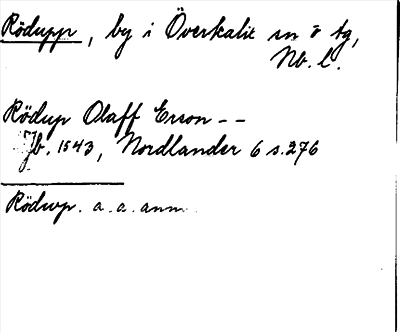 Rödupp, by i Överkalix sn o tg,
Nb. l.
Rödup Olaff Erson --
Jb. 1543, Nordlander 6 s. 276
Rödup. a. a. anm.